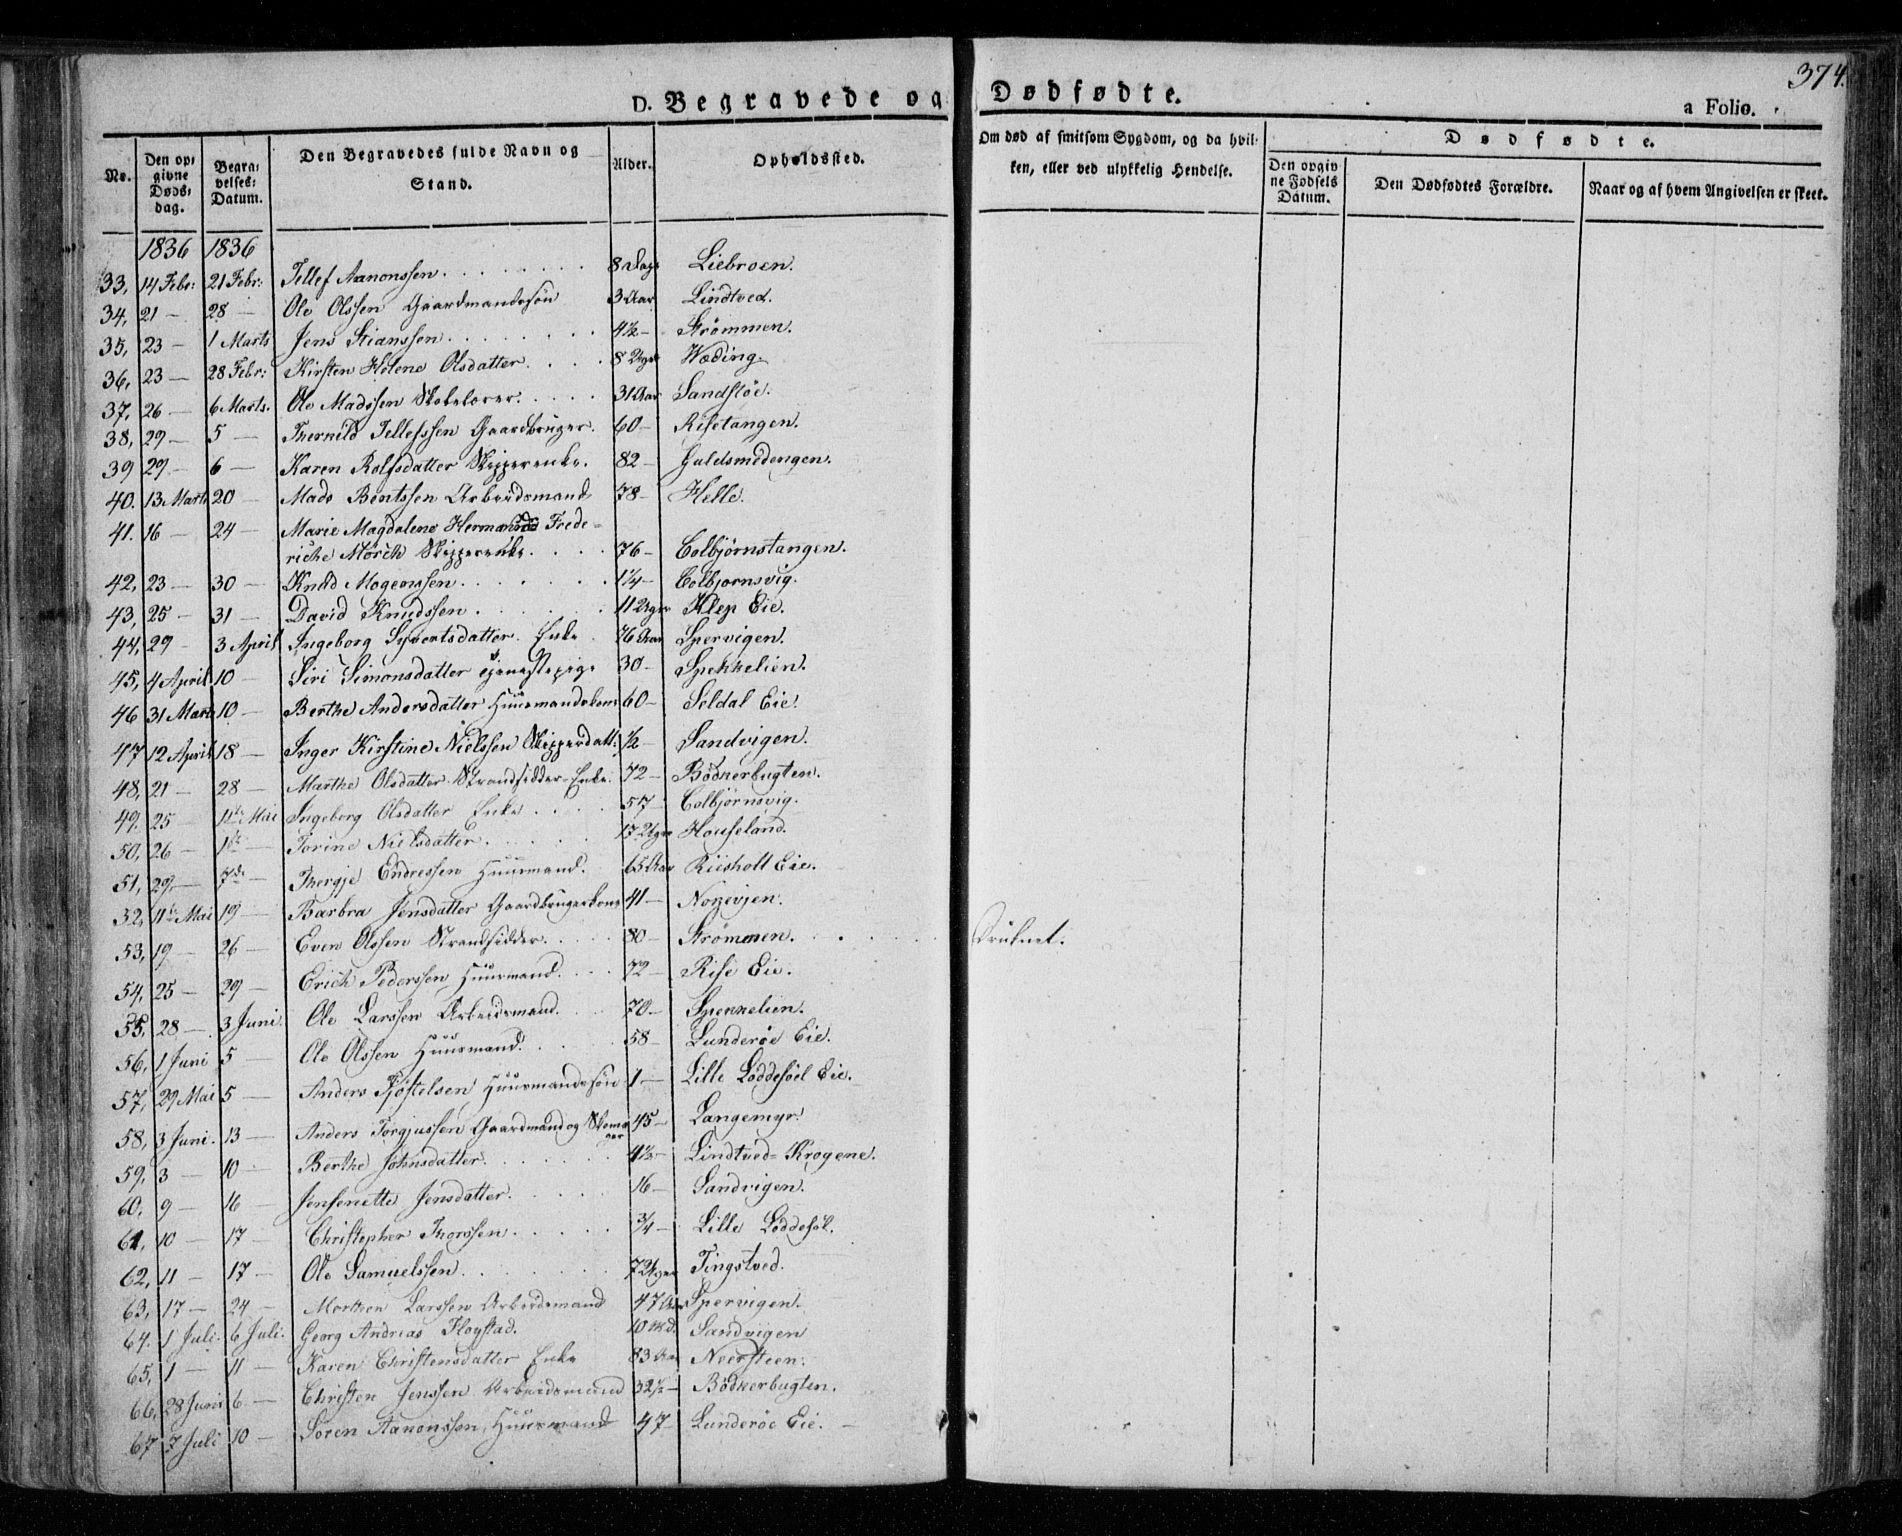 374.
D. Begravede og Dødfødte.
a Folio.
No.
Den opgivne Døds-dag.
Begravelses-Datum.
Den Begravedes fulde Navn og Stand.
Alder.
Opholdssted.
Om død af smitsom Sygdom, og da hvilken, eller ved ulykkelig Hendelse.
Dødfødte.
Den opgivne Fødsels Datum.
Den Dødfødtes Forældre.
Naar og af hvem Angivelsen er skeet.
1836 1836
33, 14 Febr: 21 Febr: Tellef Aanonssen 8 Dage Liebroen.
34, 21 — 28 — Ole Olssen Gaardmandssøn 3 Aar Lindtved.
35, 23 — 1 Marts Jens Stianssen 4½ — Strømmen.
36, 23 — 28 Febr: Kirsten Helene Olsdatter 8 Uger Wæding
37, 26 — 6 Marts. Ole Madssen 31 Aar Sandstøe.
38, 29 — 5 — Thernild Tellefssen Gaardbruger. 60 — Risetangen.
39 29 — 6 — Karen Rolfsdatter Skipperenke. 82 — Guldsmedengen.
40. 13 Marts 20 — Mads Bentssen Arbeidsmand 78 — Helle.
41. 16 — 24 — Marie Magdalene Frede-
riche Mørch Skipperenke. 76 — Colbjørnstangen.
42, 23 — 30 — Knud Mogenssen 1¼ — Colbjornsvig.
43, 25 — 31 — David Knudssen 11 Uger Klep Eie.
44, 29 — 3 April Ingeborg Syvertsdatter. Enke 76 Aar Spervigen.
45, 4 April 10 — Siri Simonsdatter tjenestepige 30 — Spekkelien.
46 31 Marts 10 — Berthe Andersdatter Huusmandskone 60 — Seldal Eie.
47 12 April 18 — Inger Kirstine Nielssen Skipperdatt: ½ — Sandvigen.
48, 21 — 28 — Marthe Olsdatter Strandsidder-Enke. 72 — Bödkerbugten.
49. 25 — 1te Mai Ingeborg Olsdatter Enke 57 — Colbjørnsvig.
50, 26 — 1te — Torine Nielsdatter 17 Uger Houseland.
51, 29 — 7de — Thergje Endressen Huusmand. 65 Aar Riisholt Eie.
52, 11te Mai 19 — Barbra Jensdatter Gaardbrugerkone 41 — Norevjen.
53, 19 — 26 — Even Olssen Strandsidder 80 — Strømmen. Druknet.
54, 25 — 29 — Erich Pederssen Huusmand 72 — Rise Eie.
55, 28 — 3 Juni. Ole Larssen Arbeidsmand 70 — Spekkelien.
56, 1 Juni 5 — Ole Olssen Huusmand. 58 — Lunderøe Eie.
57, 29 Mai 5 — Anders Kjøstelsen Huusmandssøn 1 — Lille Loddesöel Eie.
58, 3 Juni. 13 — Anders Torgjussen Gaardmand og Skomager 45 — Langemyr.
59, 3 — 10 — Berthe Johnsdatter. 4½ — Lindtved-Krogene.
60, 9 — 16 — Jensenette Jensdatter. 16 — Sandvigen.
61, 10 — 17 — Christopher Thorssen ¾ — Lille Løddesöl.
62, 11 — 17 — Ole Samuelssen 7 Uger Tingstved.
63, 17 — 24 — Morthen Larssen Arbeidsmand 47 Aar Spervigen.
64. 1 Juli. 6 Juli. Georg Andreas Floystad. 10 Md. Sandvigen
65, 1 — 11 — Karen Christensdatter Enke 83 Aar Neersteen.
66, 28 Juni 6 — Christen Jenssen Arbeidsmand 32½ — Bödkerbugten.
67 7 Juli 10 — Søren Aanonssen, Huusmand 47 Lunderöe Eie.